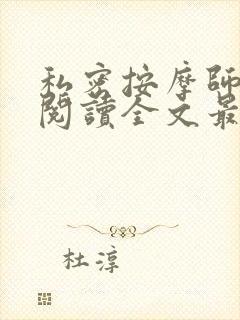 私密按摩師
閱讀全文最
杜淳